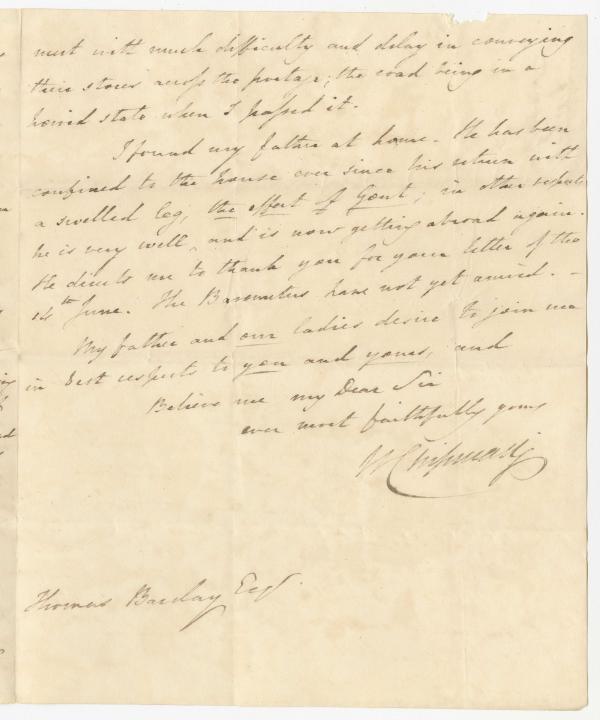 meet with much difficulty and delay in conveying
their stores across the portage; the road being in a
horrid state when I passed it.
I found my father at home. He has been
confined to the house ever since his return with
a swelled leg, the effect of Gout; in other respects
he is very well, and is now getting abroad again.
He directs me to thank you for your letter of the
14th June. The Barometers have not yet arrived. –
My father and our ladies desire to join me
in best respects to you and yours, and
Believe me my Dear Sir
ever most faithfully yours
W Chipman Jr
Thomas Barclay Esqr.